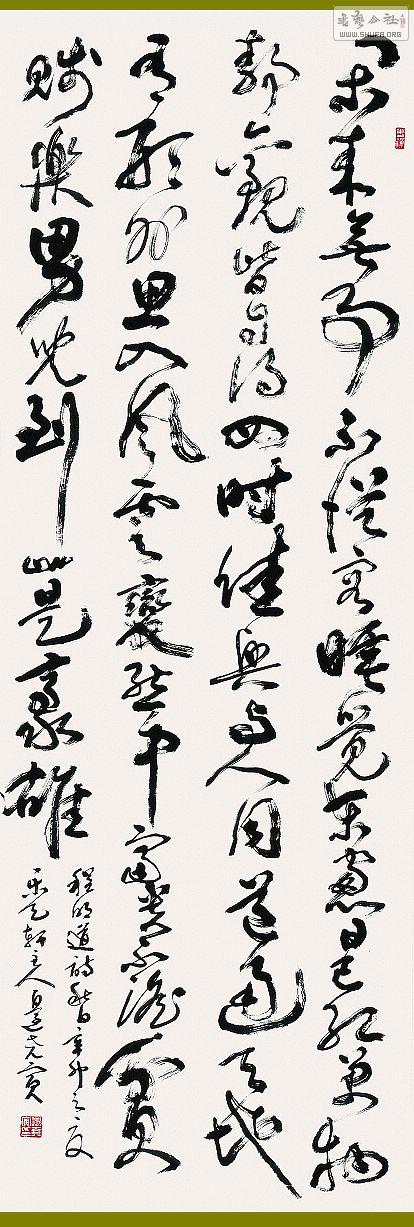 書藝公社
WWW.SHUFA.ORG
闲来無事不從容睡覺東窗日已紅萬物
靜觀皆自得四時佳興与人同道通天地
有形外思入風雲變態中富貴不淫貧
賤樂男兒到此是豪雄
程明道詩秋日辛卯之夏
樂天軒主人